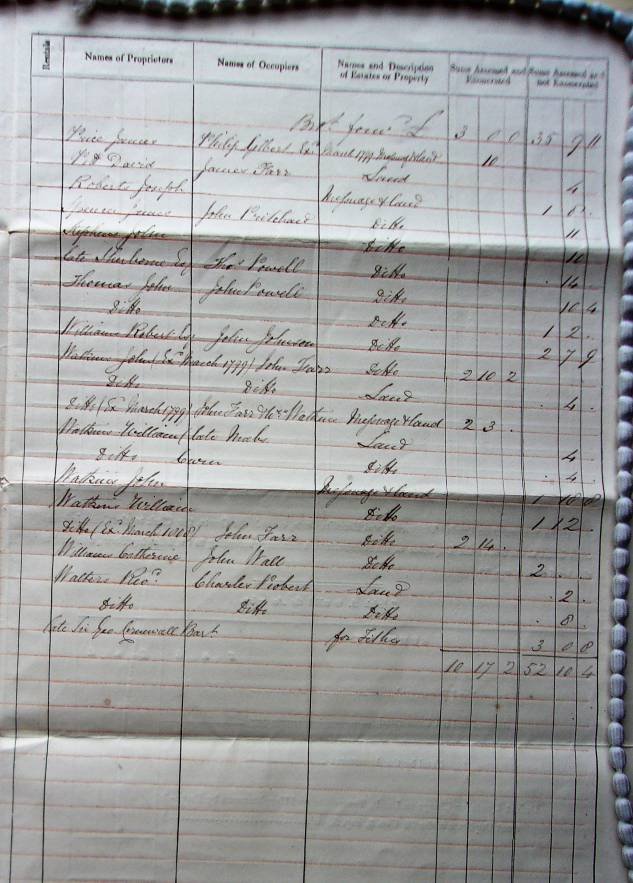 Rentals Names of Proprietors Names of Occupiers Names and Description of Estates or Property Sums Assessed and Exonerated Sums Assessed and not Exonerated
Bro.t forw.d £ 3 0 0 35 9 11
Price James Philip Gilbert Ex.d March 1799 Messuage & land 10
David James Farr Land 4
Roberts Joseph Messuage & land 1 6 .
Spencer James John Pritchard Ditto 11
Stephens John Ditto
late Sherborne Esq Tho.s Powell Ditto . 14 .
Thomas John John Powell Ditto 10 4
Ditto Ditto 1 2 .
Williams Robert Esq John Johnson Ditto 2 7 9
Watkins John (Ex.d March 1799) John Farr Ditto 2 10 2
Ditto Ditto Land . 4 .
Ditto (Ex.d March 1799) John Farr & Watkins Messuage & land 2 3 .
Watkins William (late Land 4
Ditto Ditto . 4 .
Watkins John Messuage & land 1 10 8
Watkins William Ditto 1 12 .
Ditto (Ex.d March John Farr Ditto 2 14 .
Williams Catherine John Wall Ditto 2 . .
Walters Rev.d Charles Probert Land . 2 .
Ditto Ditto Ditto . 8 .
late Sir Geo Cornewall Bart for Tithes 3 0 8
10 17 2 52 10 4